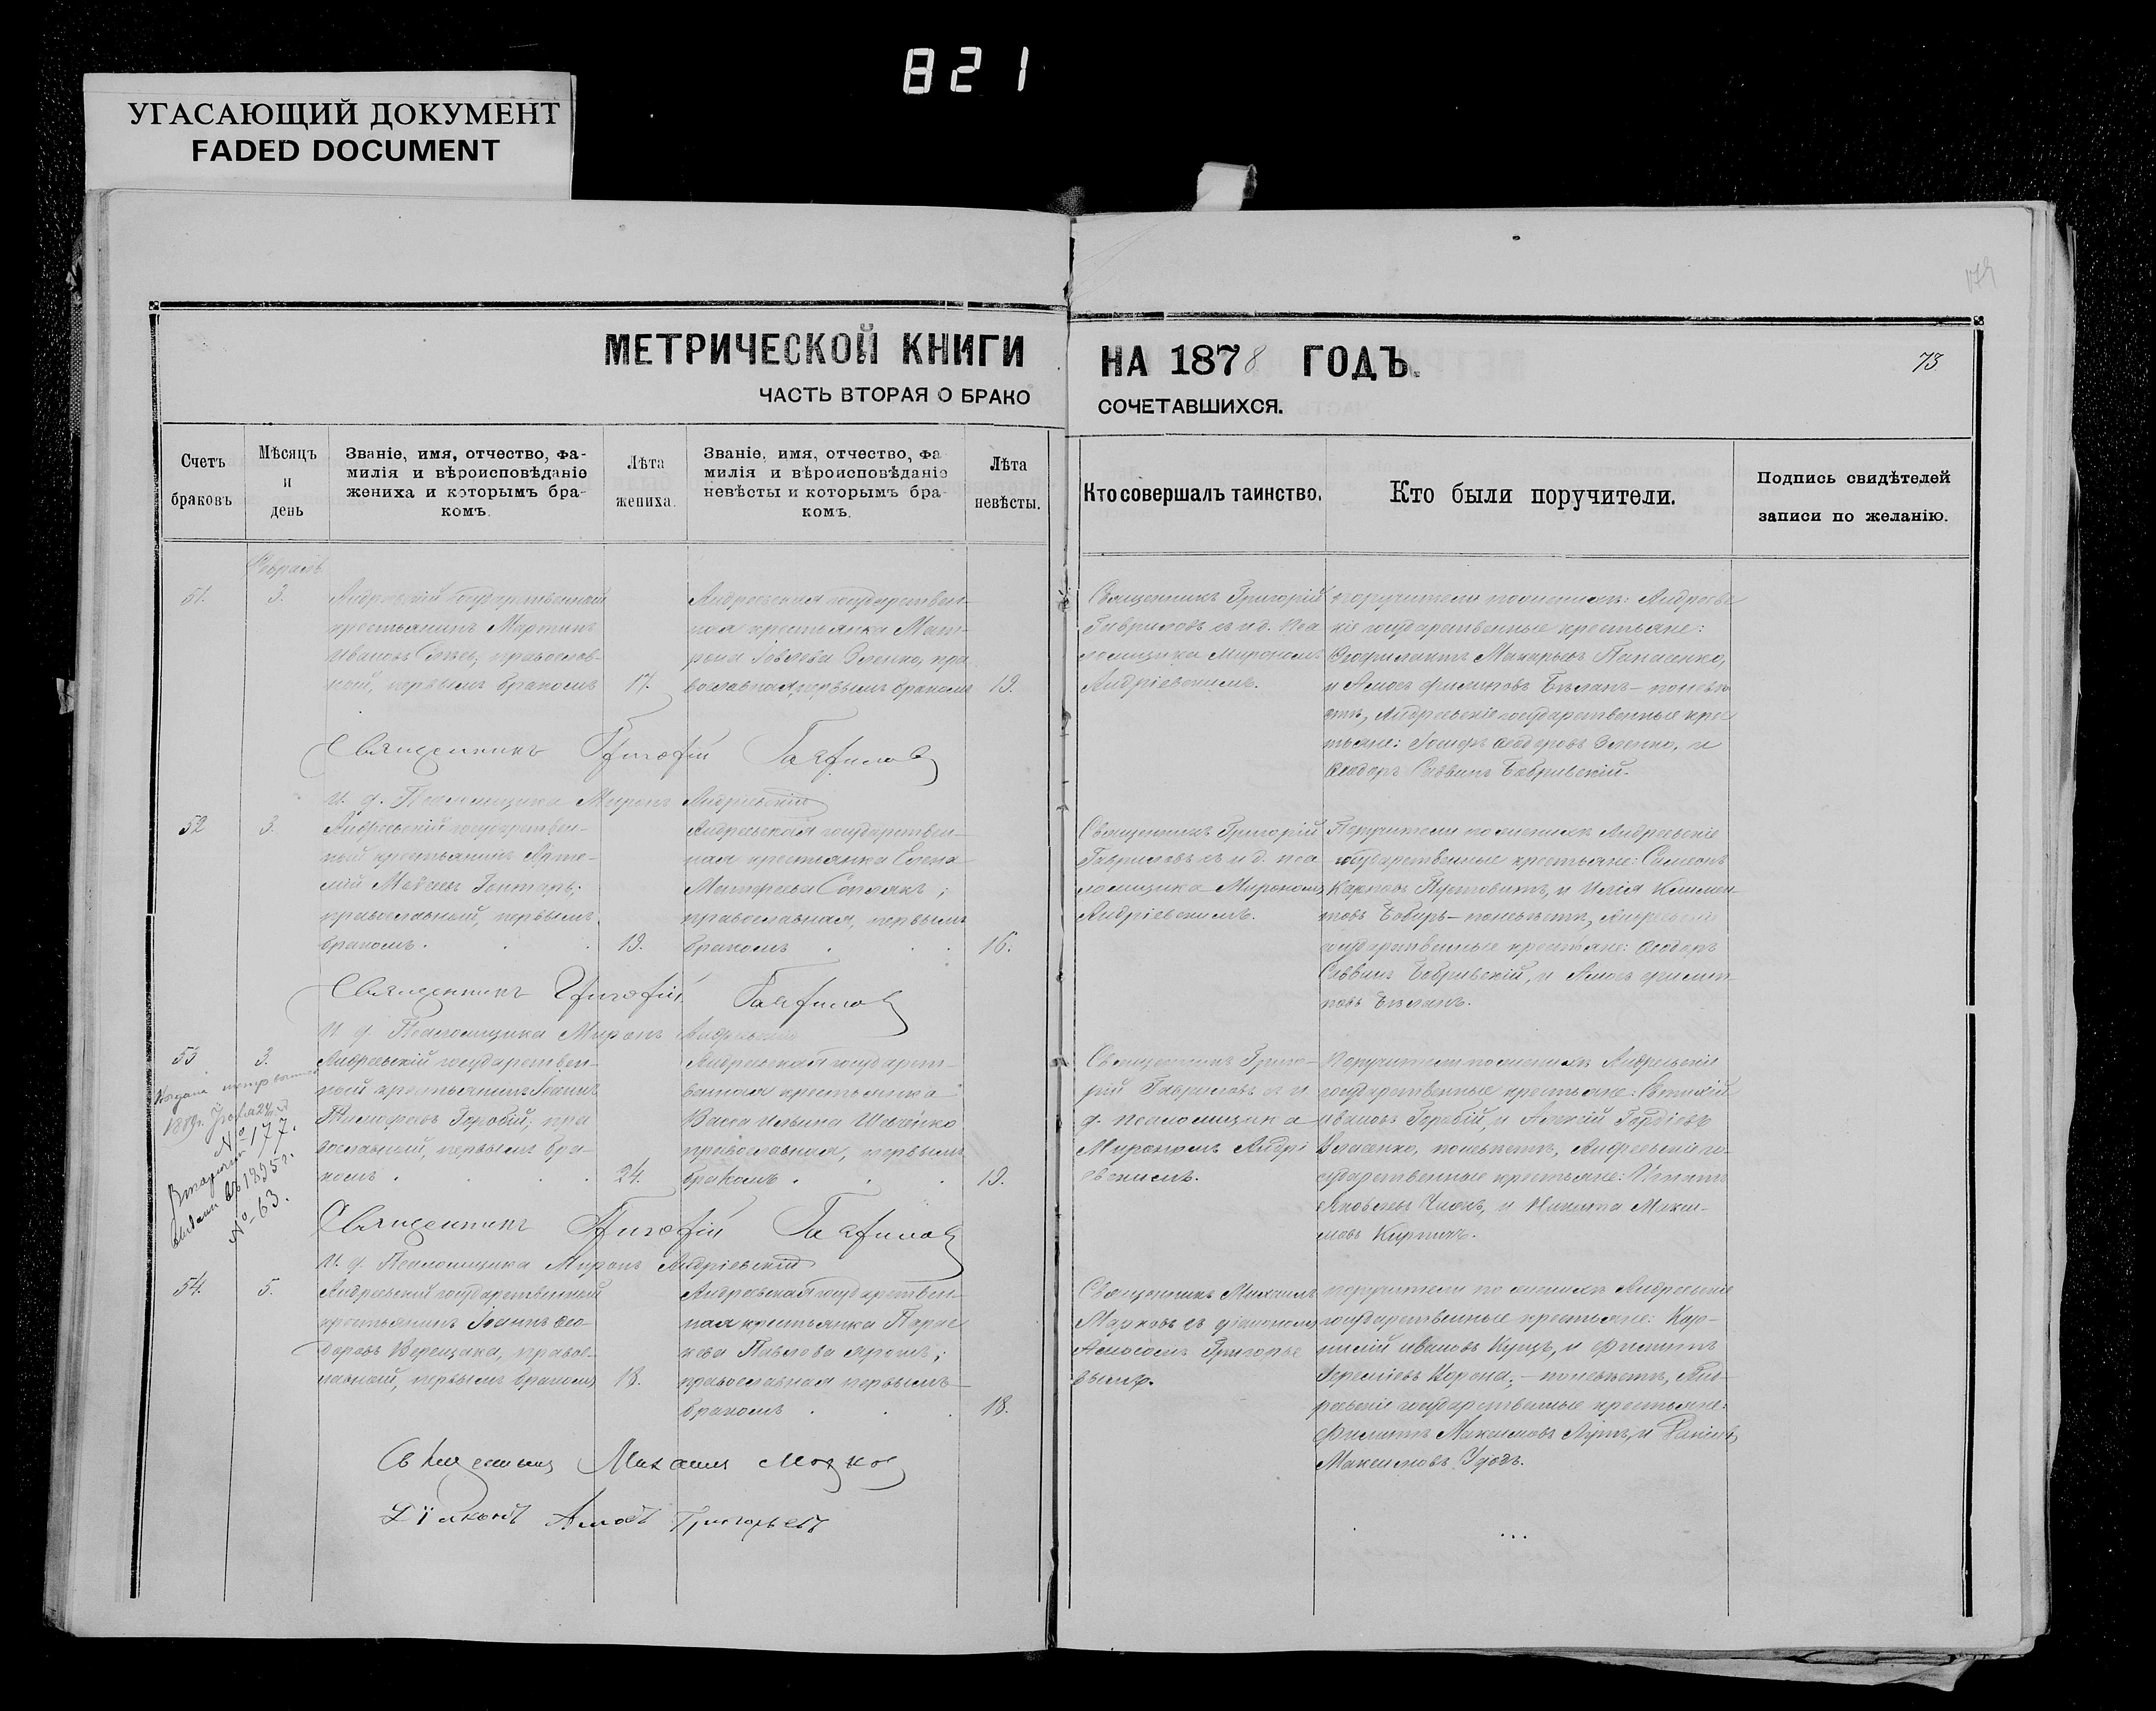 821
УГАСАЮЩИЙ ДОКУМЕНТ
FADED DOCUMENT
МЕТРИЧЕСКОЙ КНИГИ
НА 1878 ГОДЪ.
73
ЧАСТЬ ВТОРАЯ О БРАКО
СОЧЕТАВШИХСЯ.
Счетъ
браковъ
Мѣсяцъ
и
день
Званіе, имя, отчество, фа-
милія и вѣроисповѣданіе
жениха и которымъ бра-
комъ.
Лѣта
жениха.
Званіе, имя, отчество, фа
милія и вѣроисповѣданіе
невѣсты и которымъ бра-
комъ.
Лѣта
невѣсты.
Кто совершалъ таинство.
Кто были поручители.
Подпись свидѣтелей
записи по желанію.
Февраль
51.
3.
крестьянинъ Мартинъ
Ивановъ православ-
ный, первымъ бракомъ
17.
Андреевская государствен-
ная крестьянка Мат-
рона Зленко, пра
вославная, первымъ бракомъ
19.
Священникъ Григорій
Гавриловъ съ и д. пса
ломщика Мирономъ
Андріевскимъ.
поручители по женихѣ: Андреевс
кіе государственные крестьяне:
Макарьевъ Панасенко,
и Амосъ Филиповъ Бѣланъ - по невѣ
стѣ, Андреевскіе государственные кре
тьяне: Іосифъ Ѳеодоровъ Зленко, и
Ѳеодоръ Саввинъ Бобривскій.
Священникъ Григорій Гавриловъ
И. д. Псаломщика Миронъ Андріевскій
52
3.
Андреевскій государствен-
ный крестьянинъ Арте-
мій
православный, первымъ
бракомъ.
19.
Андреевская государствен-
ная крестьянка Елена
Матфеева
православная, первымъ
бракомъ
16.
Священникъ Григорій
Гавриловъ съ и д. пса
ломщика Мирономъ
Андріевскимъ.
Поручители по женихѣ Андреевскіе
государственные крестьяне: Симеонъ
Карповъ и Илія Климен
товъ Бобырь - по невѣстѣ, Андреевскіе
государственные крестьяне: Ѳеодоръ
Саввинъ Бобривскій, и Амосъ Филип
повъ Бѣланъ.
Священникъ Григорій Гавриловъ
И д. Псаломщика Миронъ Андріевскій
53
3.
1889г.
№ 177.
1895г.
№ 63.
Андреевскій государствен-
ный крестьянинъ Іоаннъ
Тимофеевъ Горобій; пра
вославный, первымъ бра-
комъ
24.
Андреевская государст-
венная крестьянка
Васса Ильина
православная, первымъ
бракомъ.
19.
Священникъ Григо-
рій Гавриловъ съ и
д. псаломщика
Мирономъ Андрі
евскимъ.
Поручители по женихѣ Андреевскіе
государственные крестьяне:
Ивановъ Горобій, и Алексій Гордіевъ
Власенко, по невѣстѣ, Андреевскіе го-
сударственные крестьяне:
Яковлевъ и Никита Макси-
мовъ Кирпичъ.
Священникъ Григорій Гавриловъ
И. д. Псаломщика Миронъ Андріевскій
54.
5.
Андреевскій государственный
крестьянинъ Іоаннъ Ѳео-
доровъ Верещака, правос-
лавный, первымъ бракомъ
18.
Андреевская государствен-
ная крестьянка Парас
кева Павлова
православная первымъ
бракомъ
18.
Священникъ Михаилъ
Марковъ съ діакономъ
Амосомъ Григорье
вымъ.
поручители по женихѣ Андреевскіе
государственные крестьяне: Кор-
нилій Ивановъ Куцъ, и Филиппъ
Іереміевъ Корона; - по невѣстѣ, Анд-
реевскіе государственные крестьяне:
Филиппъ Максимовъ и
Максимовъ Удодъ.
Священникъ Михаилъ Марковъ
Діаконъ Амосъ Григорьевъ